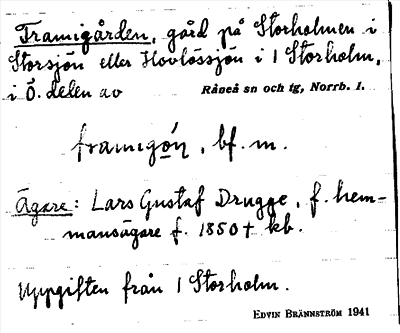 Framigården, gård på Storholmen i
Storsjön eller Hovlössjön i 1 Storholm,
i Ö. delen av Råneå sn och tg, Norrb. l.
framigo̲ń, bf. m.
Ägare: Lars Gustaf Drugge, f. hem-
mansägare f. 1850 † kb.
Uppgiften från 1 Storholm.
EDVIN BRÄNNSTRÖM 1941